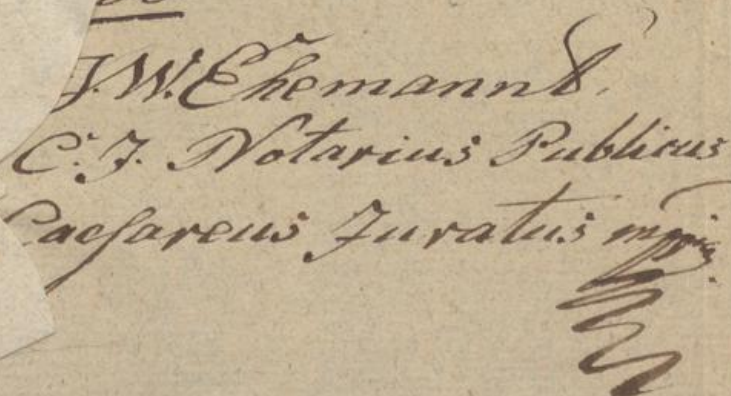 J. W. Ehemann
C. J. Notarius Publicus
Caesareus Juratus mppria